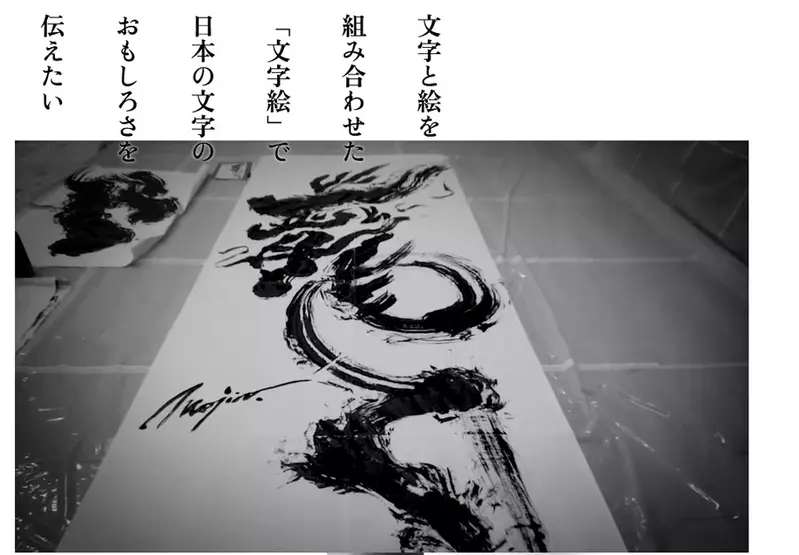 文字と絵を
組み合わせた
「文字絵」で
日本の文字の
おもしろさを
伝えたい